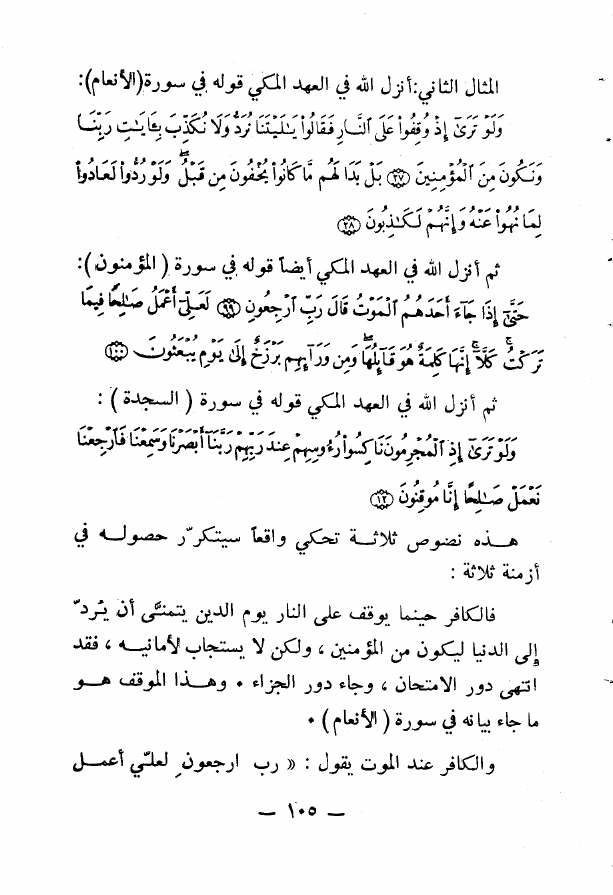 المثال الثاني: أنزل الله في العهد المكي قوله في سورة (الأنعام):
وَلَوْ تَرَىٰٓ إِذْ وُقِفُوا۟ عَلَى ٱلنَّارِ فَقَالُوا۟ يَـٰلَيْتَنَا نُرَدُّ وَلَا نُكَذِّبَ بِـَٔايَـٰتِ رَبِّنَا
وَنَكُونَ مِنَ ٱلْمُؤْمِنِينَ ٢٧ بَلْ بَدَا لَهُم مَّا كَانُوا۟ يُخْفُونَ مِن قَبْلُ ۖ وَلَوْ رُدُّوا۟ لَعَادُوا۟
لِمَا نُهُوا۟ عَنْهُ وَإِنَّهُمْ لَكَـٰذِبُونَ ٢٨
ثم أنزل الله في العهد المكي أيضاً قوله في سورة (المؤمنون):
حَتَّىٰٓ إِذَا جَآءَ أَحَدَهُمُ ٱلْمَوْتُ قَالَ رَبِّ ٱرْجِعُونِ ٩٩ لَعَلِّىٓ أَعْمَلُ صَـٰلِحًا فِيمَا
تَرَكْتُ ۚ كَلَّآ ۚ إِنَّهَا كَلِمَةٌ هُوَ قَآئِلُهَا ۖ وَمِن وَرَآئِهِم بَرْزَخٌ إِلَىٰ يَوْمِ يُبْعَثُونَ ١٠٠
ثم أنزل الله في العهد المكي قوله في سورة (السجدة):
وَلَوْ تَرَىٰٓ إِذِ ٱلْمُجْرِمُونَ نَاكِسُوا۟ رُءُوسِهِمْ عِندَ رَبِّهِمْ رَبَّنَآ أَبْصَرْنَا وَسَمِعْنَا فَٱرْجِعْنَا
نَعْمَلْ صَـٰلِحًا إِنَّا مُوقِنُونَ ١٢
هـذه نصوص ثلاثـة تحكي واقعاً سيتكرّر حصولـه في
أزمنة ثلاثة :
فالكافر حينما يوقف على النار يوم الدين يتمنّى أن يُردّ
إلى الدنيا ليكون من المؤمنين ، ولكن لا يستجاب لأمانيـه ، فقد
انتهى دور الامتحان ، وجاء دور الجزاء . وهـذا الموقف هـو
ما جاء بيانه في سورة (الأنعام) .
والكافر عند الموت يقول : « رب ارجعونِ لعلّي أعمـل
— ١٠٥ —